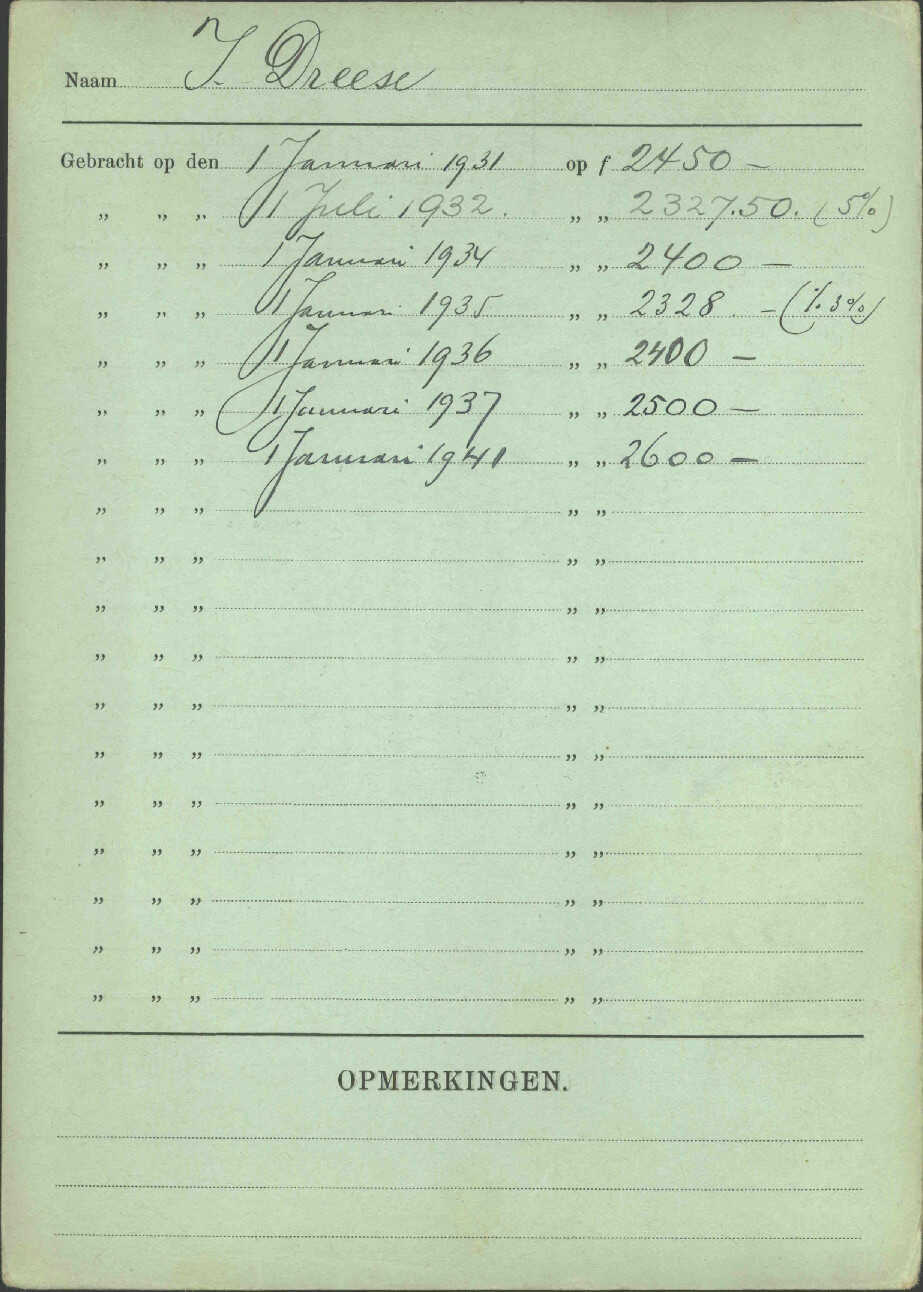 Naam J. Dreese
Gebracht op den 1 Januari 1931 op f 2450 —
„ „ „ 1 Juli 1932. „ „ 2327.50. (5%)
„ „ „ 1 Januari 1934 „ „ 2400 —
„ „ „ 1 Januari 1935 „ „ 2328. — (%. 3%)
„ „ „ 1 Januari 1936 „ „ 2400 —
„ „ „ 1 Januari 1937 „ „ 2500 —
„ „ „ 1 Januari 1941 „ „ 2600 —
„ „ „ „ „
„ „ „ „ „
„ „ „ „ „
„ „ „ „ „
„ „ „ „ „
„ „ „ „ „
„ „ „ „ „
„ „ „ „ „
„ „ „ „ „
„ „ „ „ „
„ „ „ „ „
OPMERKINGEN.